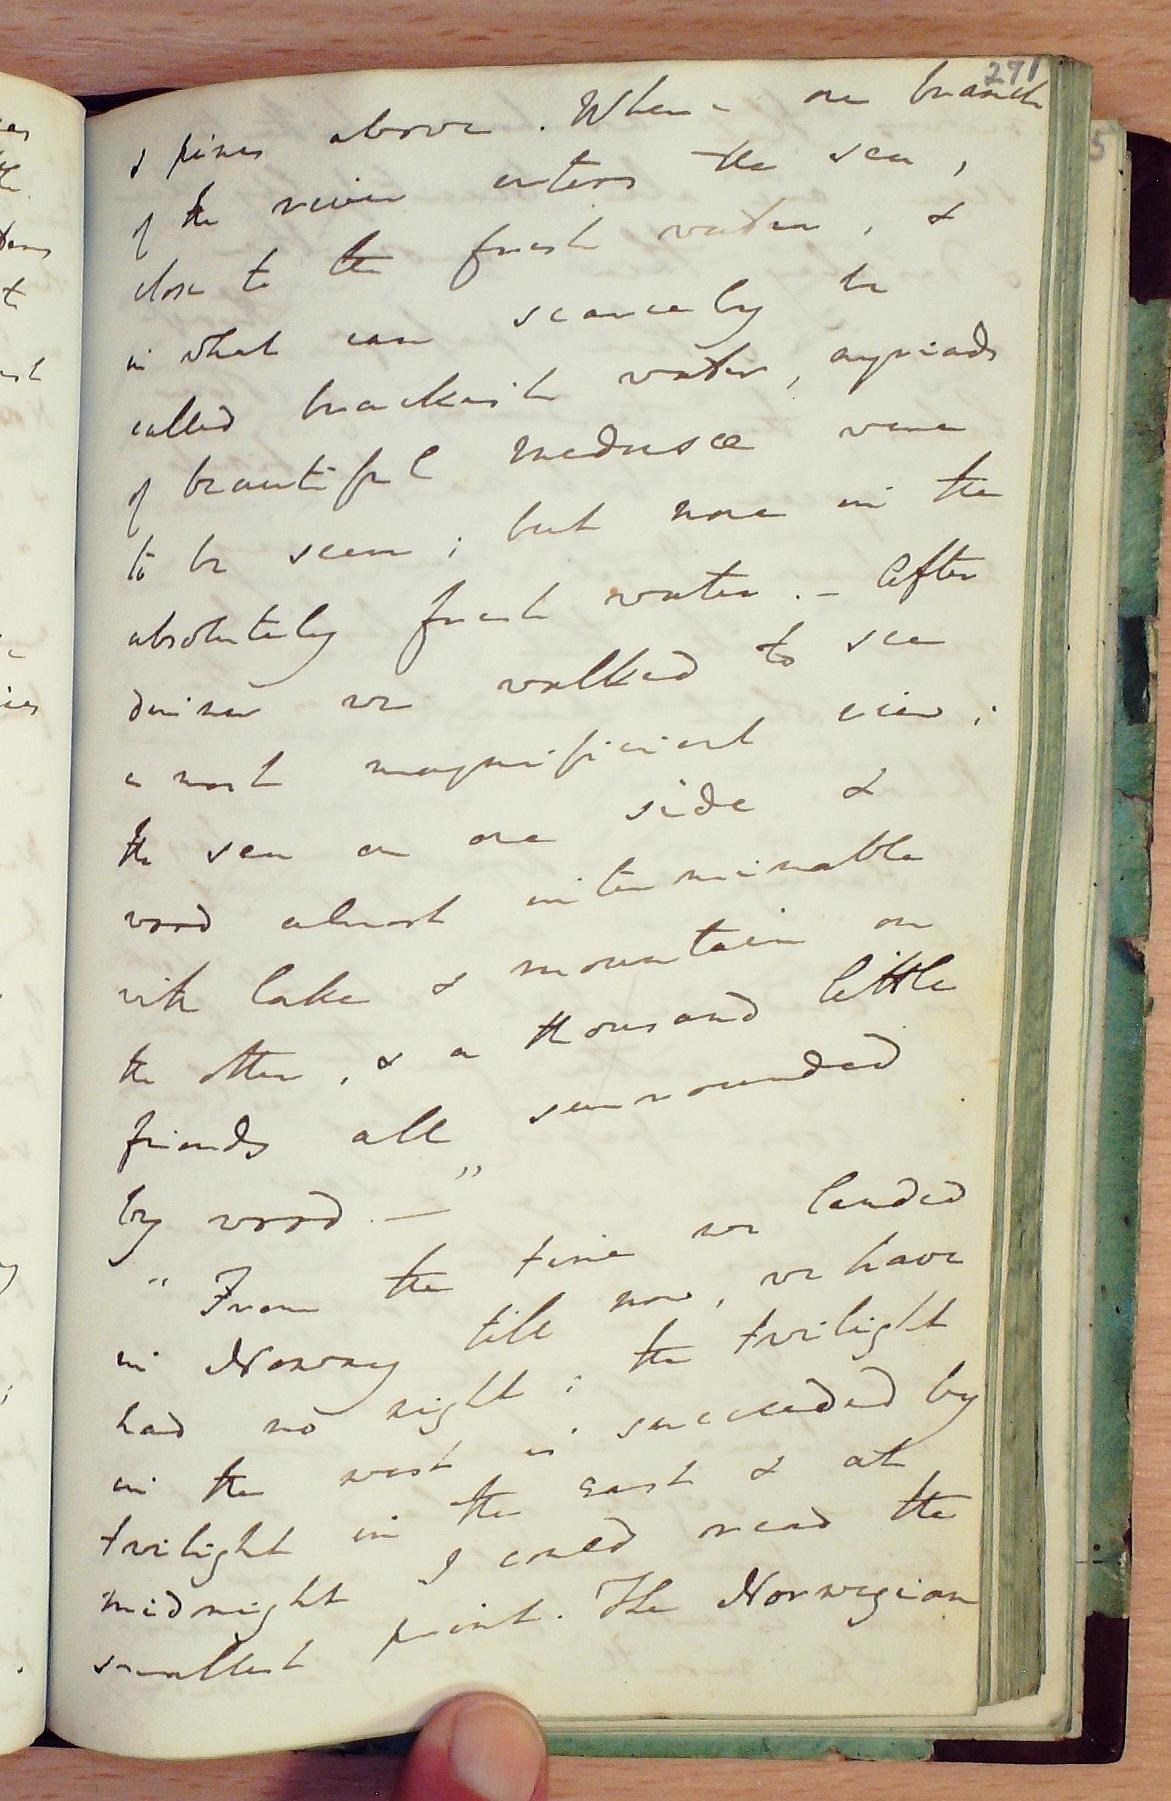 291
& pines above. Where one branch
of the river enters the sea,
close to the fresh water, &
in what can scarcely be
called brackish water, myriads
of beautiful Medusæ were
to be seen; but none in the
absolutely fresh water. — After
dinner we walked to see
a most magnificient view;
the sea on one side &
wood almost interminable
with lake & mountain on
the other, & a thousand little
friends all surrounded
by wood. — "
" From the time we landed
in Norway till now, we have
had no night; the twilight
in the west is succeeded by
twilight in the east & at
midnight I could read the
smallest print. The Norwegian